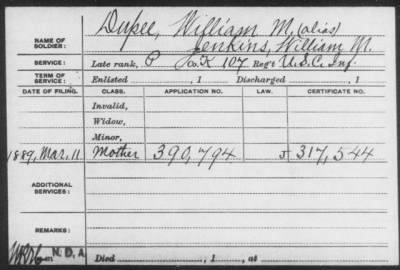 Dupee, William M. (alias)
NAME OF SOLDIER: Jenkins, William M.
SERVICE: Late rank, P Co. K 107 Reg't U.S.C. Inf.
TERM OF SERVICE: Enlisted , 1 Discharged , 1
DATE OF FILING. CLASS. APPLICATION NO. LAW. CERTIFICATE NO.
Invalid,
Widow,
Minor,
1889, Mar. 11 Mother 390,794 J 317,544
ADDITIONAL SERVICES:
REMARKS:
N. D. A.
Died , 1 , at